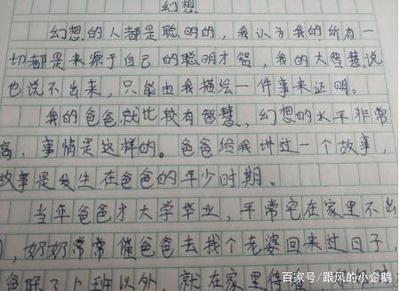 幻想
幻想的人都是聪明的，我认为我的所有一
切都是来源于自己的聪明才智，我的大智慧说
也说不出来，只能由我描绘一件事来证明。
我的爸爸就比较有智慧，幻想的水平非常
高，事情是这样的。爸爸给我讲过一个故事，
故事是发生在爸爸的年少时期。
当年爸爸才大学毕业，平常宅在家里不出
，奶奶常常催爸爸去找个老婆回来过日子，
爸除了上班以外，就在家里待
百家号/跟风的小企鹅